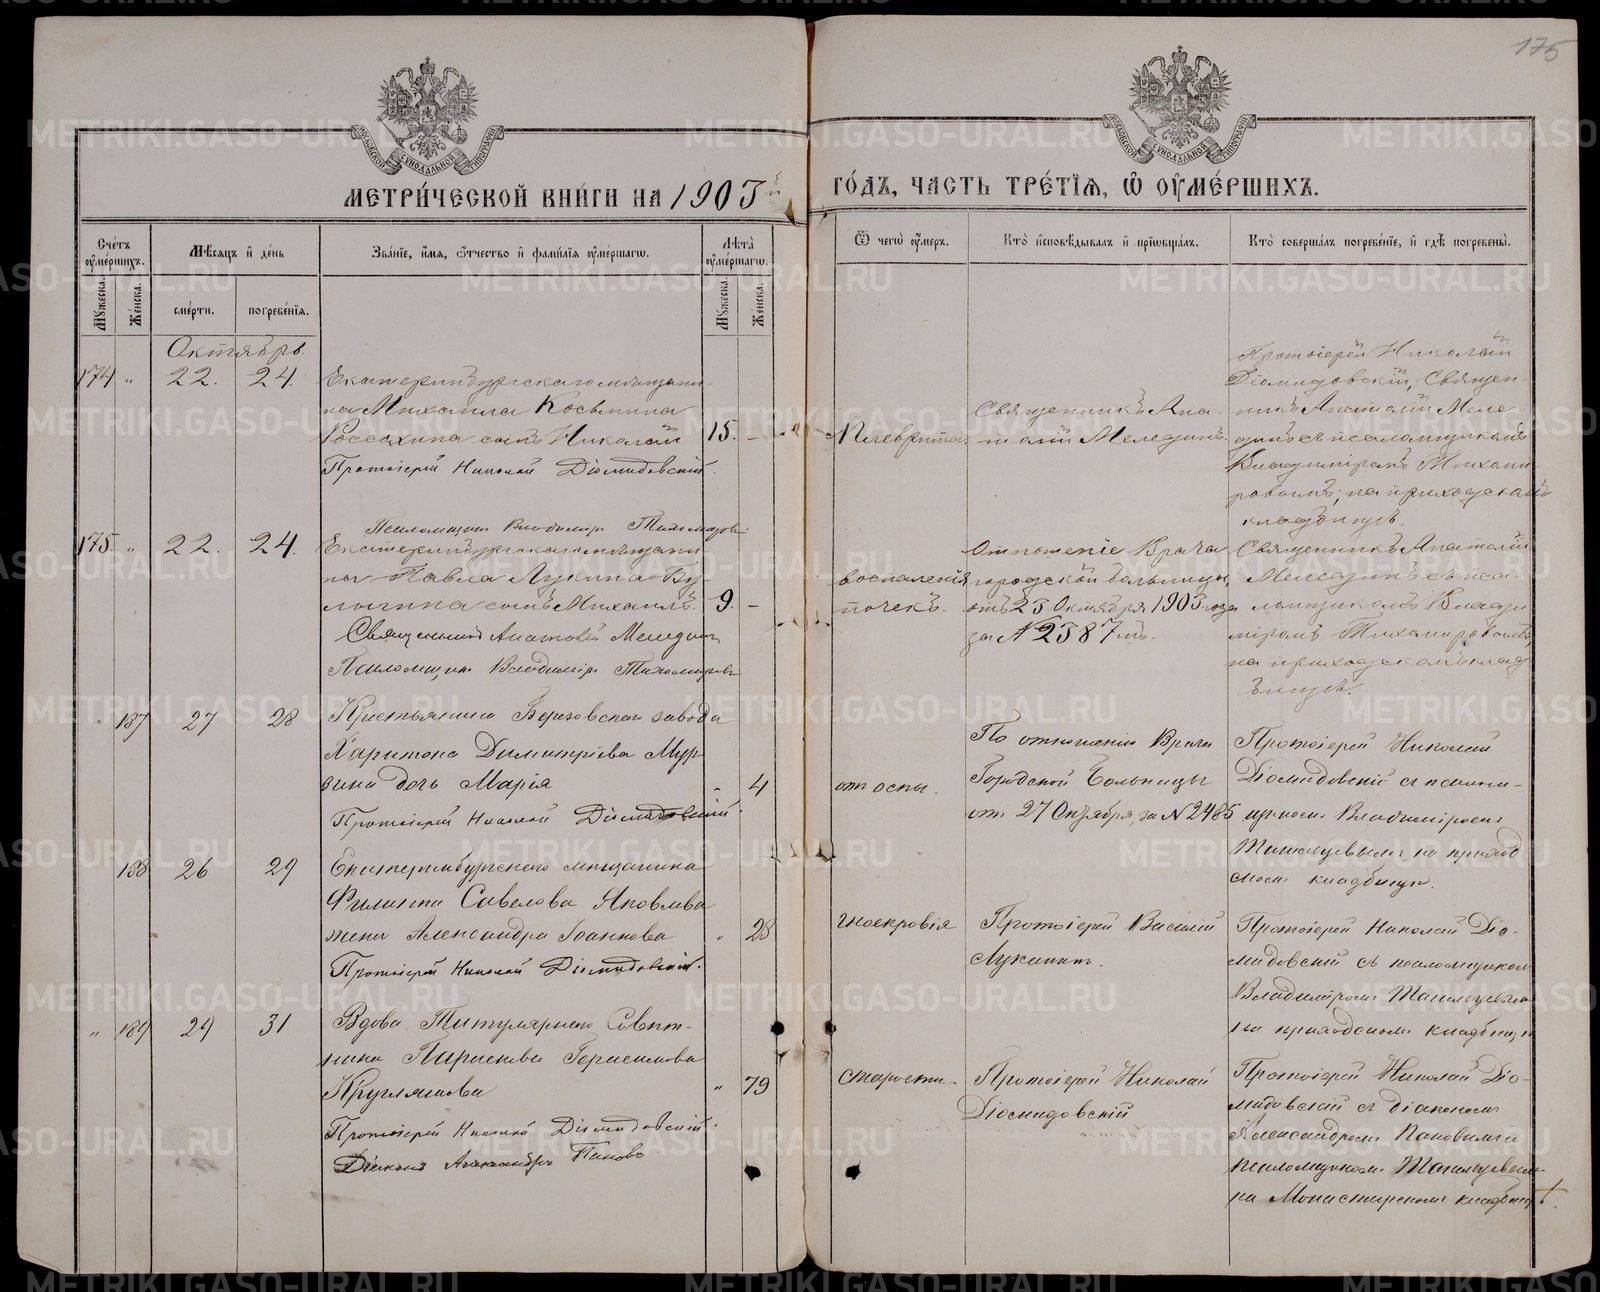 175
МЕТРИ́ЧЕСКОЙ КНИ́ГИ НА 1903 й
ГО́ДЪ, ЧАСТЬ ТРЕ́ТІѦ, Ѡ ОУ҆МЕ́РШИХЪ.
Сче́тъ оу҆ме́ршихъ.
Мꙋ́жеска.
Же́нска.
Мѣ́сяцъ и҆ де́нь
сме́рти.
погребе́нїѧ.
Зва́нїе, и҆́мѧ, ѻ҆́тчество и҆ фами́лїѧ оу҆ме́ршагѡ.
Лѣ́та оу҆ме́ршагѡ.
Мꙋ́жеска.
Же́нска.
Ѿ чегѡ̀ оу҆́меръ.
Кто̀ и҆сповѣ́дывалъ и҆ прїѡбща́лъ.
Кто̀ соверша́лъ погребе́нїе, и҆ гдѣ̀ погребены̀.
Октябрь
174 " 22. 24.
Екатеринбургскаго мѣщани-
на Михаила Косьмина
Россохина сынъ Николай 15. -
Протоіерей Николай Діомидовскій.
Плеврита
Священникъ Ана-
толій Мелединъ.
Протоіерей Николай
Діомидовскій, Священ-
никъ Анатолій Меле
динъ съ псаломщикомъ
Владиміромъ Тихоми-
ровымъ; на приходскомъ
кладбищѣ.
Псаломщикъ Владиміръ Тихомировъ.
175. " 22. 24.
Екатеринбургскаго мѣщани-
на Павла Лукина Бу-
лыгина сынъ Михаилъ. 9. -
Священникъ Анатолій Меледин
Псаломщикъ Владиміръ Тихомировъ
воспаленія
почекъ.
Отношеніе Врача
городской больницы
отъ 23 Октября 1903 года
за № 2387мъ.
Священникъ Анатолій
Меледин съ пса-
ломщикомъ Влади
міромъ Тихомировымъ,
на приходскомъ клад
бищѣ.
" 187 27 28
Крестьянина Березовскаго завода
Харитона Димитріева Мур
зина дочь Марія " 4
Протоіерей Николай Діомидовскій.
отъ оспы.
По отношенію Врача
Городской Больницы
отъ 27 Октября, за № 2485
Протоіерей Николай
Діомидовскій съ псалом-
щикомъ Владиміромъ
на приход
скомъ кладбищѣ.
188 26 29
Екатеринбургскаго мѣщанина
Филиппа Савелова Яковлева
жена Александра Іоаннова " 28
Протоіерей Николай Діомидовскій.
гноекровія
Протоіерей Василій
Лукинъ.
Протоіерей Николай Діо-
мидовскій съ псаломщиком
Владиміромъ
на приходскомъ кладбищѣ
" 189 29 31
Вдова Титулярнаго Совѣт-
ника Параскева Герасимова
Круглякова " 79
Протоіерей Николай Діомидовскій.
Діаконъ Александръ Пановъ
старости.
Протоіерей Николай
Діомидовскій
Протоіерей Николай Діо-
мидовскій съ діакономъ
Александромъ Пановымъ и
псаломщикомъ
на Монастырскомъ кладбищѣ.